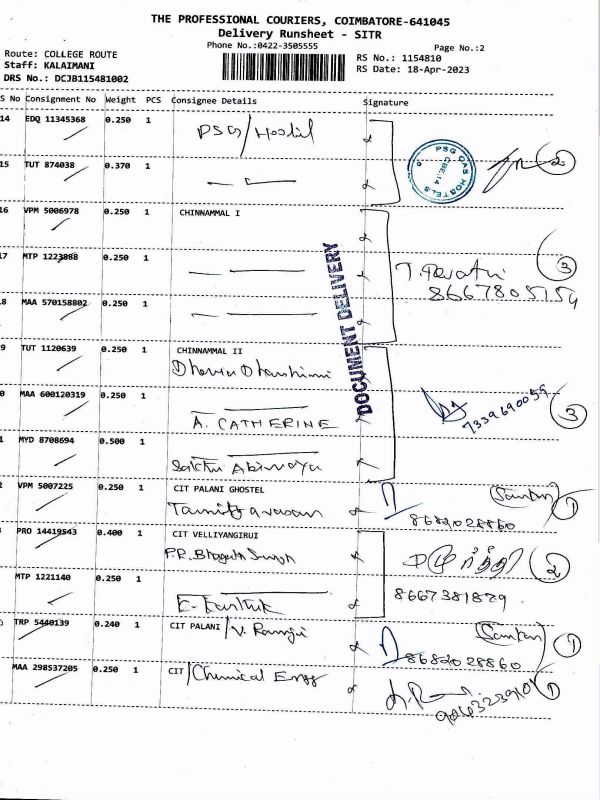 THE PROFESSIONAL COURIERS, COIMBATORE-641045
Delivery Runsheet - SITR
Phone No.:0422-3505555
Page No.:2
Route: COLLEGE ROUTE
RS No.: 1154810
Staff: KALAIMANI
RS Date: 18-Apr-2023
DRS No.: DCJB115481002
S No Consignment No Weight PCS Consignee Details Signature
14 EDQ 11345368 0.250 1 PSG/Hostel
PSG CAS HOSTELS CBE.14
2
15 TUT 874038 0.370 1
16 VPM 5006978 0.250 1 CHINNAMMAL I
17 MTP 1223888 0.250 1
3
8667805154
18 MAA 570158802 0.250 1
DOCUMENT DELIVERY
9 TUT 1120639 0.250 1 CHINNAMMAL II
Dharshini
0 MAA 600120319 0.250 1
A. CATHERINE
7339690059
3
1 MYD 8708694 0.500 1
Sakthi Abinaya
2 VPM 5007225 0.250 1 CIT PALANI GHOSTEL
8682028860
1
PRO 14419543 0.400 1 CIT VELLIYANGIRUI
P.R. Bhagath Singh
2
MTP 1221140 0.250 1
8667381879
E. Karthik
TRP 5440139 0.240 1 CIT PALANI /V. Ramji
8682028860
1
MAA 298537205 0.250 1 CIT /Chemical Engg
1